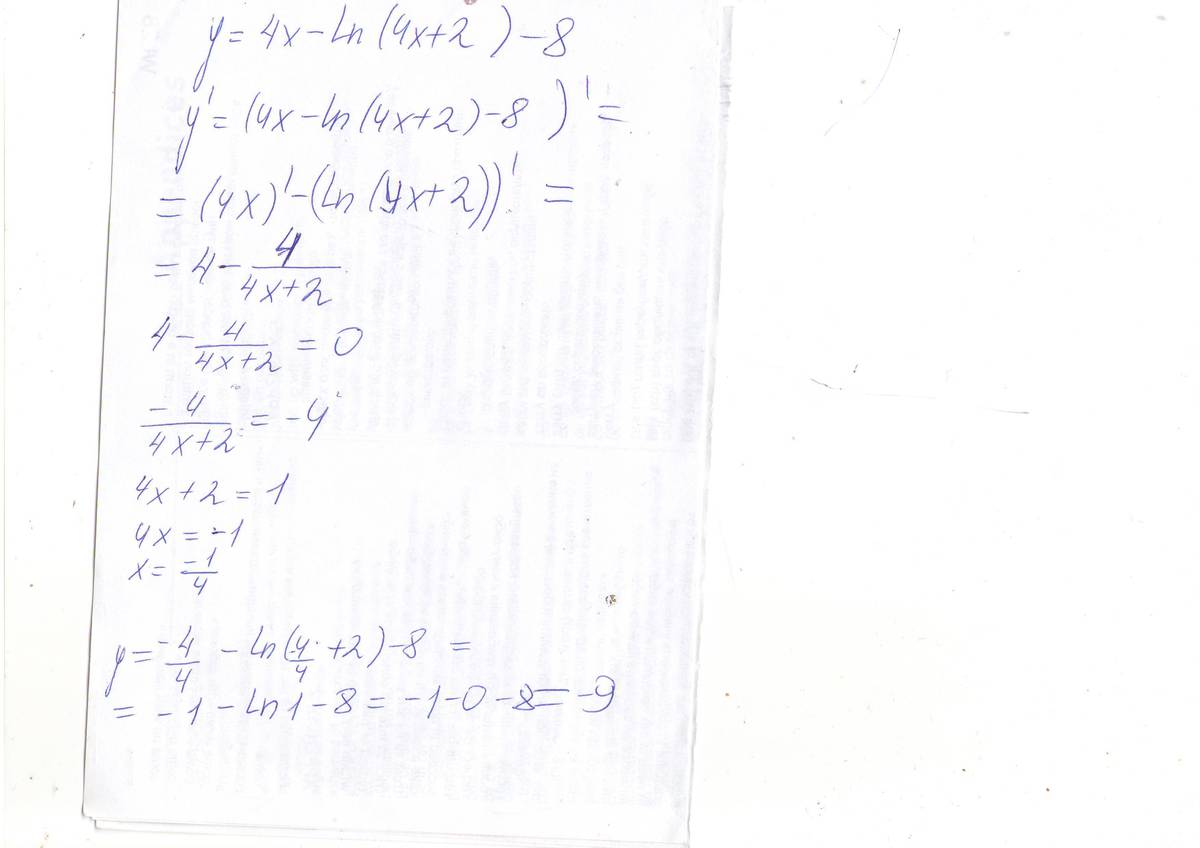 y = 4x - ln(4x+2) - 8
y' = (4x - ln(4x+2) - 8)' =
= (4x)' - (ln(4x+2))' =
= 4 - 4/(4x+2)
4 - 4/(4x+2) = 0
-4/(4x+2) = -4
4x + 2 = 1
4x = -1
x = -1/4
y = -4/4 - ln(-4/4 + 2) - 8 =
= -1 - ln1 - 8 = -1 - 0 - 8 = -9